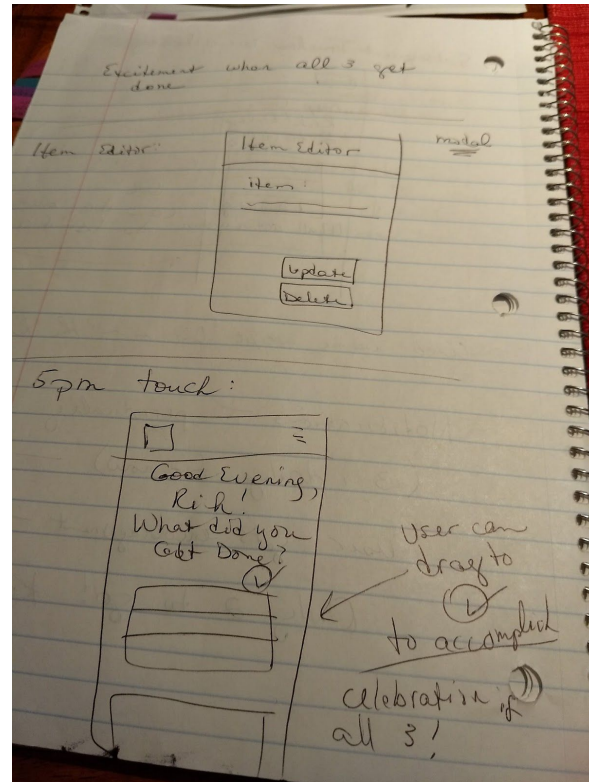 Excitement when all 3 get
done
Item Editor:
Item Editor
modal
item:
Update
Delete
5pm touch:
Good Evening,
Rich!
What did you
Get Done?
User can
drag to
to accomplish
celebration if
all 3!